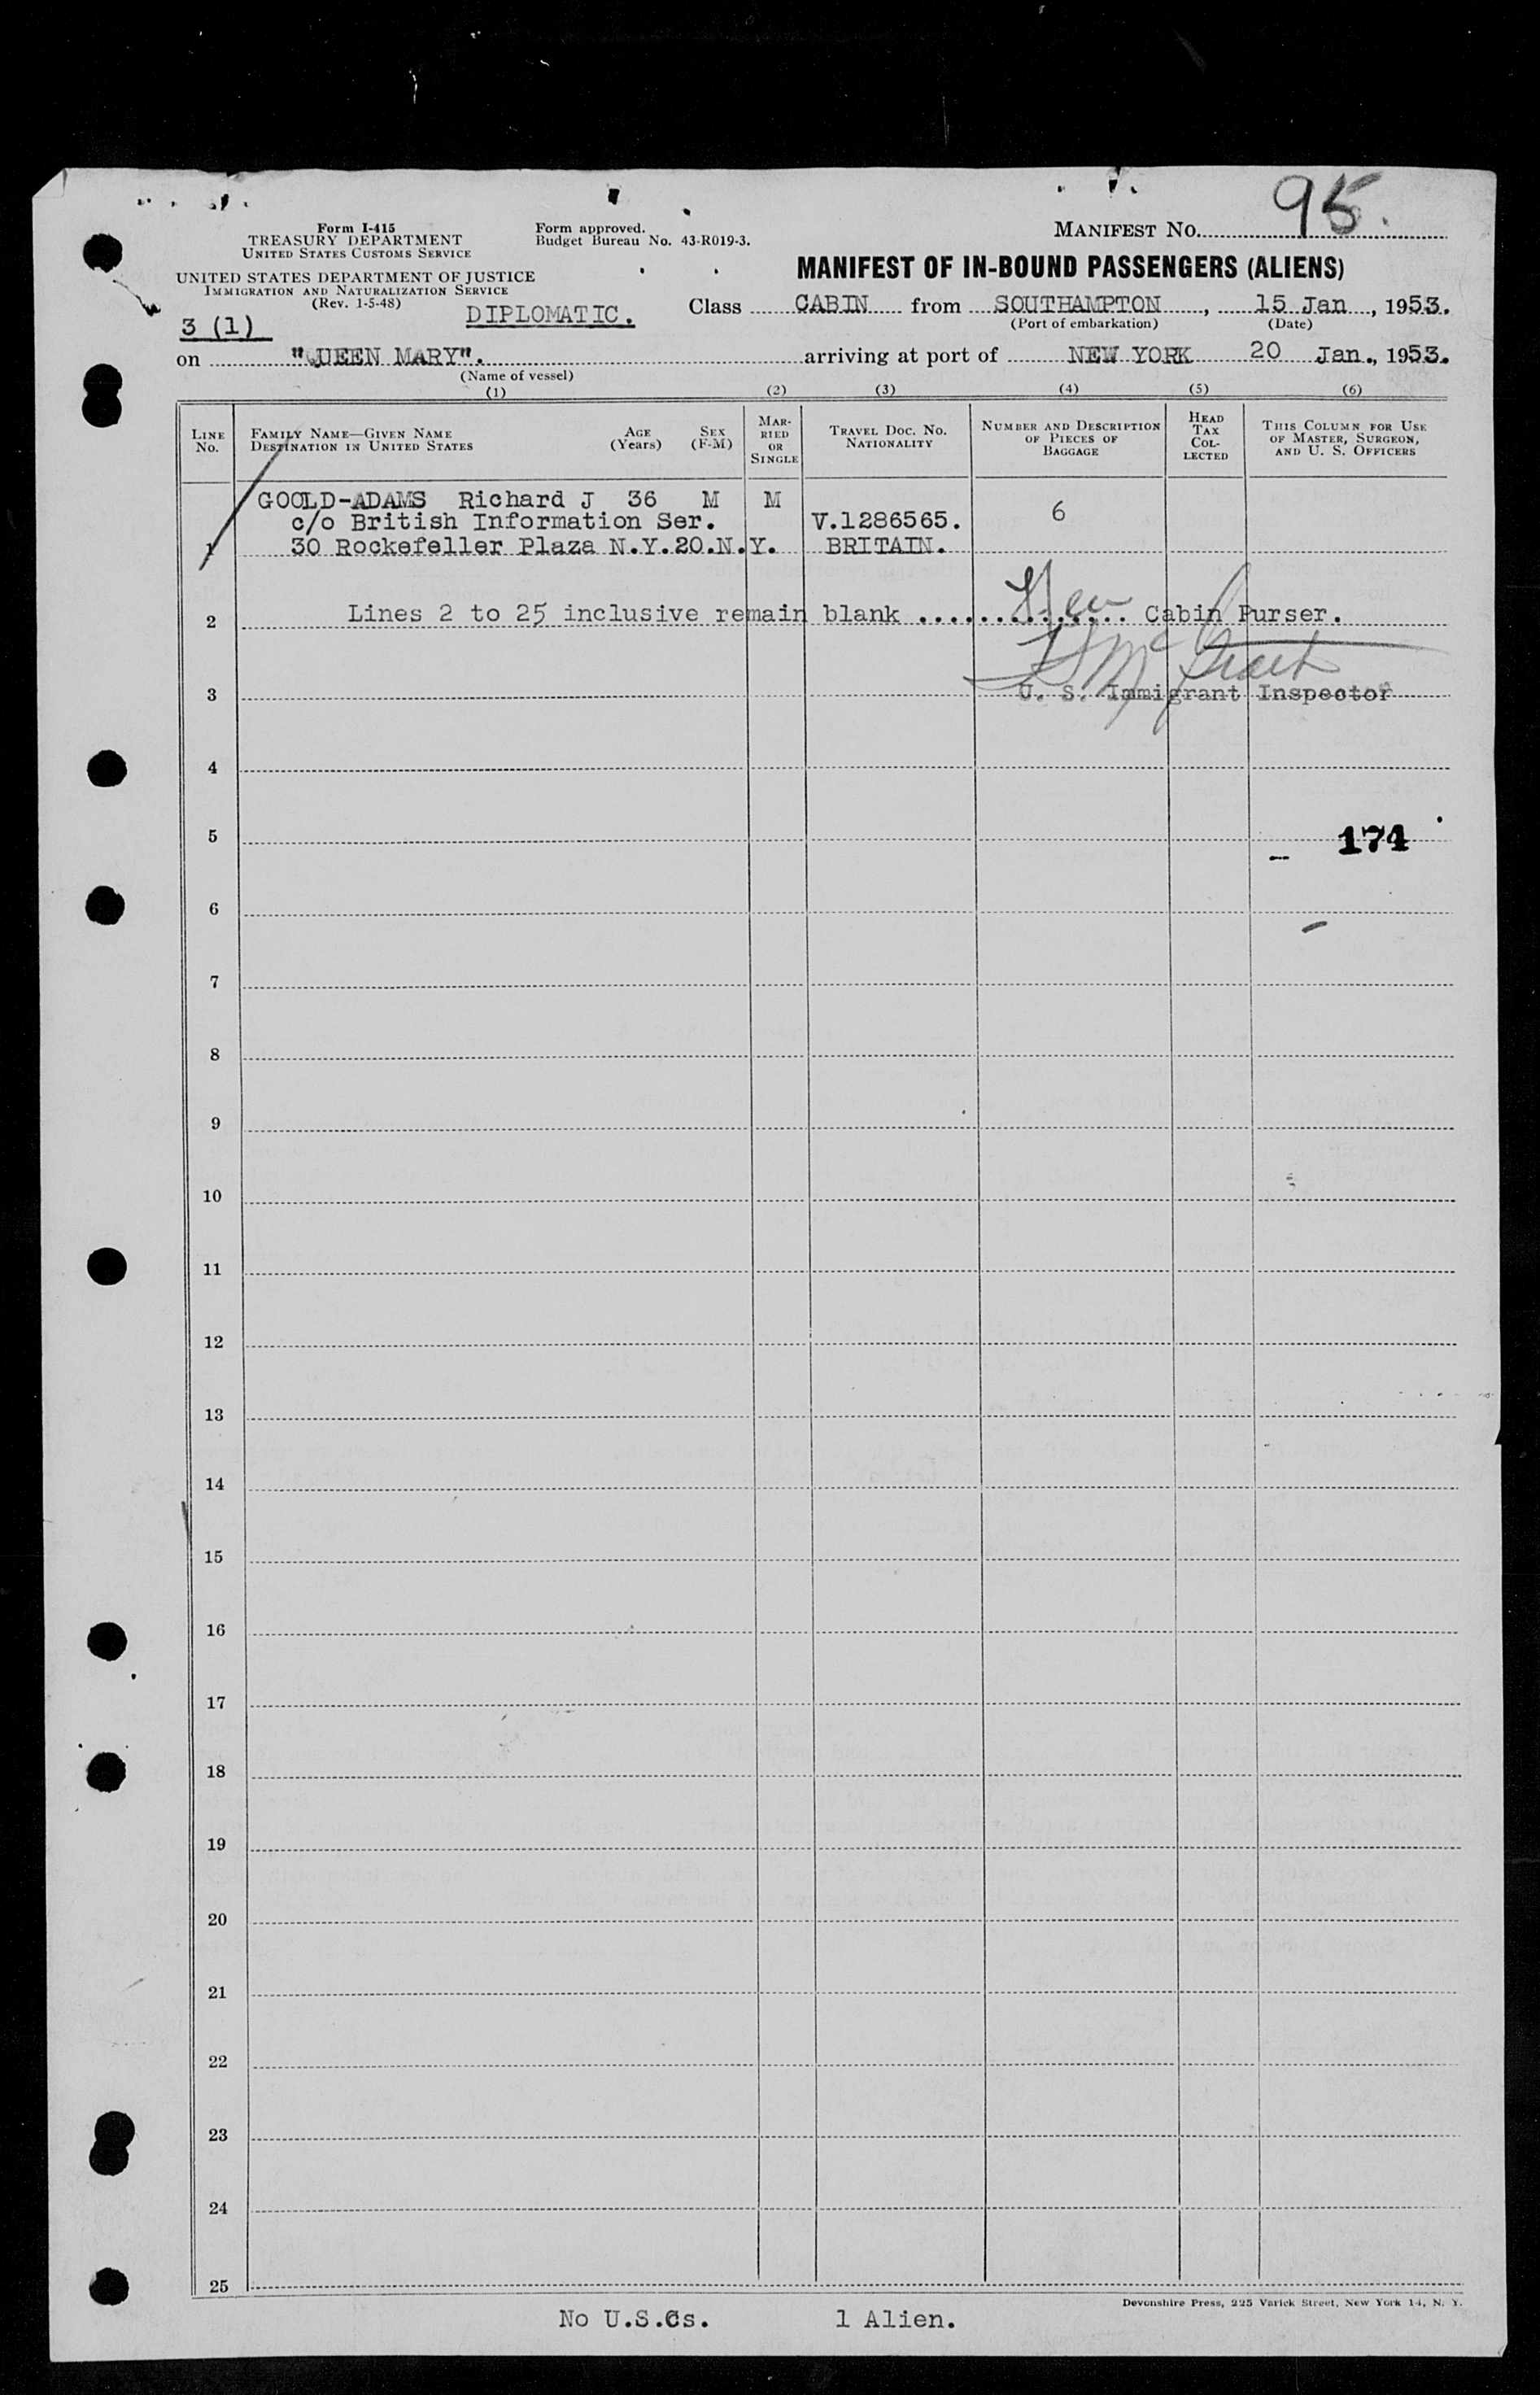 95.
Form I-415
TREASURY DEPARTMENT
UNITED STATES CUSTOMS SERVICE
Form approved.
Budget Bureau No. 43-R019-3.
MANIFEST NO.
UNITED STATES DEPARTMENT OF JUSTICE
IMMIGRATION AND NATURALIZATION SERVICE
(Rev. 1-5-48)
MANIFEST OF IN-BOUND PASSENGERS (ALIENS)
3 (1) DIPLOMATIC. Class CABIN from SOUTHAMPTON, 15 Jan, 1953.
(Port of embarkation) (Date)
on "QUEEN MARY". arriving at port of NEW YORK 20 Jan., 1953.
(Name of vessel)
(1) (2) (3) (4) (5) (6)
LINE NO.
FAMILY NAME—GIVEN NAME
DESTINATION IN UNITED STATES
AGE (Years)
SEX (F-M)
MARRIED OR SINGLE
TRAVEL DOC. NO.
NATIONALITY
NUMBER AND DESCRIPTION OF PIECES OF BAGGAGE
HEAD TAX COLLECTED
THIS COLUMN FOR USE OF MASTER, SURGEON, AND U. S. OFFICERS
GOOLD-ADAMS Richard J 36 M M
c/o British Information Ser. V.1286565. 6
1 30 Rockefeller Plaza N.Y.20.N.Y. BRITAIN.
2 Lines 2 to 25 inclusive remain blank .............. Cabin Purser.
3 U. S. Immigrant Inspector
4
5 174
6
7
8
9
10
11
12
13
14
15
16
17
18
19
20
21
22
23
24
25
Devonshire Press, 225 Varick Street, New York 14, N. Y.
No U.S.Cs. 1 Alien.